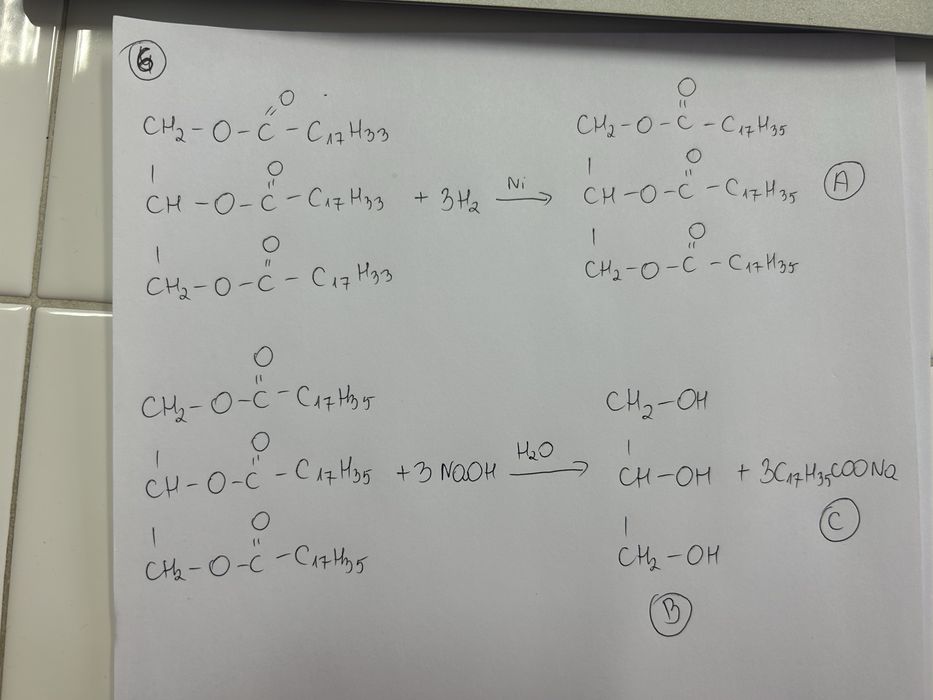 6
CH₂-O-C(=O)-C₁₇H₃₃
CH-O-C(=O)-C₁₇H₃₃ + 3H₂ →(Ni)
CH₂-O-C(=O)-C₁₇H₃₃
CH₂-O-C(=O)-C₁₇H₃₅
CH-O-C(=O)-C₁₇H₃₅ A
CH₂-O-C(=O)-C₁₇H₃₅
CH₂-O-C(=O)-C₁₇H₃₅
CH-O-C(=O)-C₁₇H₃₅ + 3 NaOH →(H₂O)
CH₂-O-C(=O)-C₁₇H₃₅
CH₂-OH
CH-OH + 3C₁₇H₃₅COONa
CH₂-OH
B
C